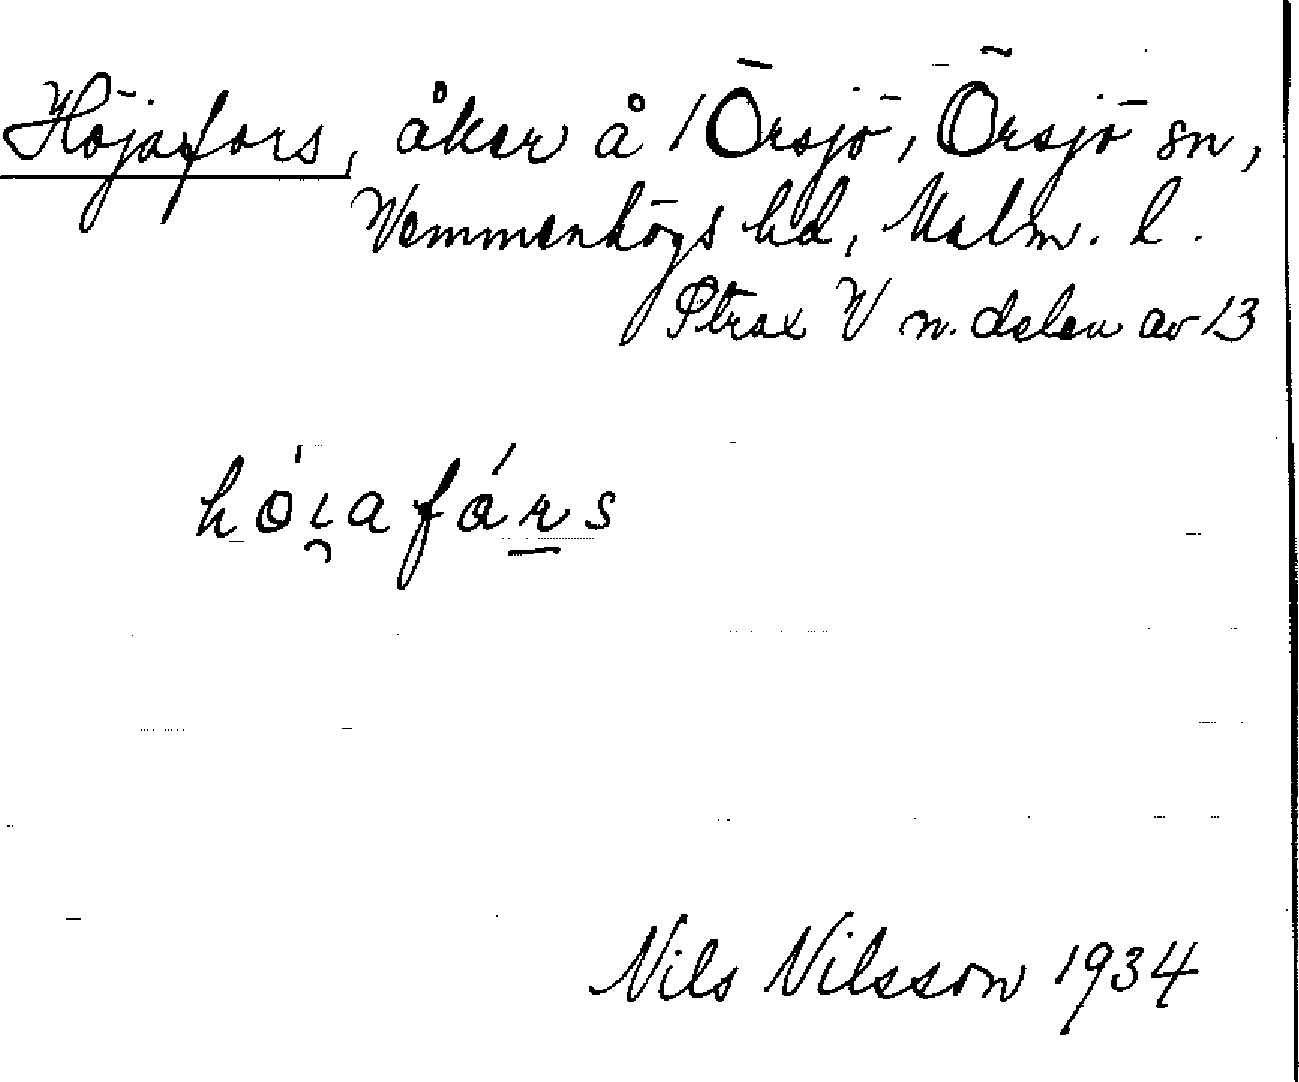 Höjafors, åker å 1 Örsjö, Örsjö sn,
Vemmenhögs hd, Malm. l.
Strax V n. delen av 13
hói̯afárs
Nils Nilsson 1934